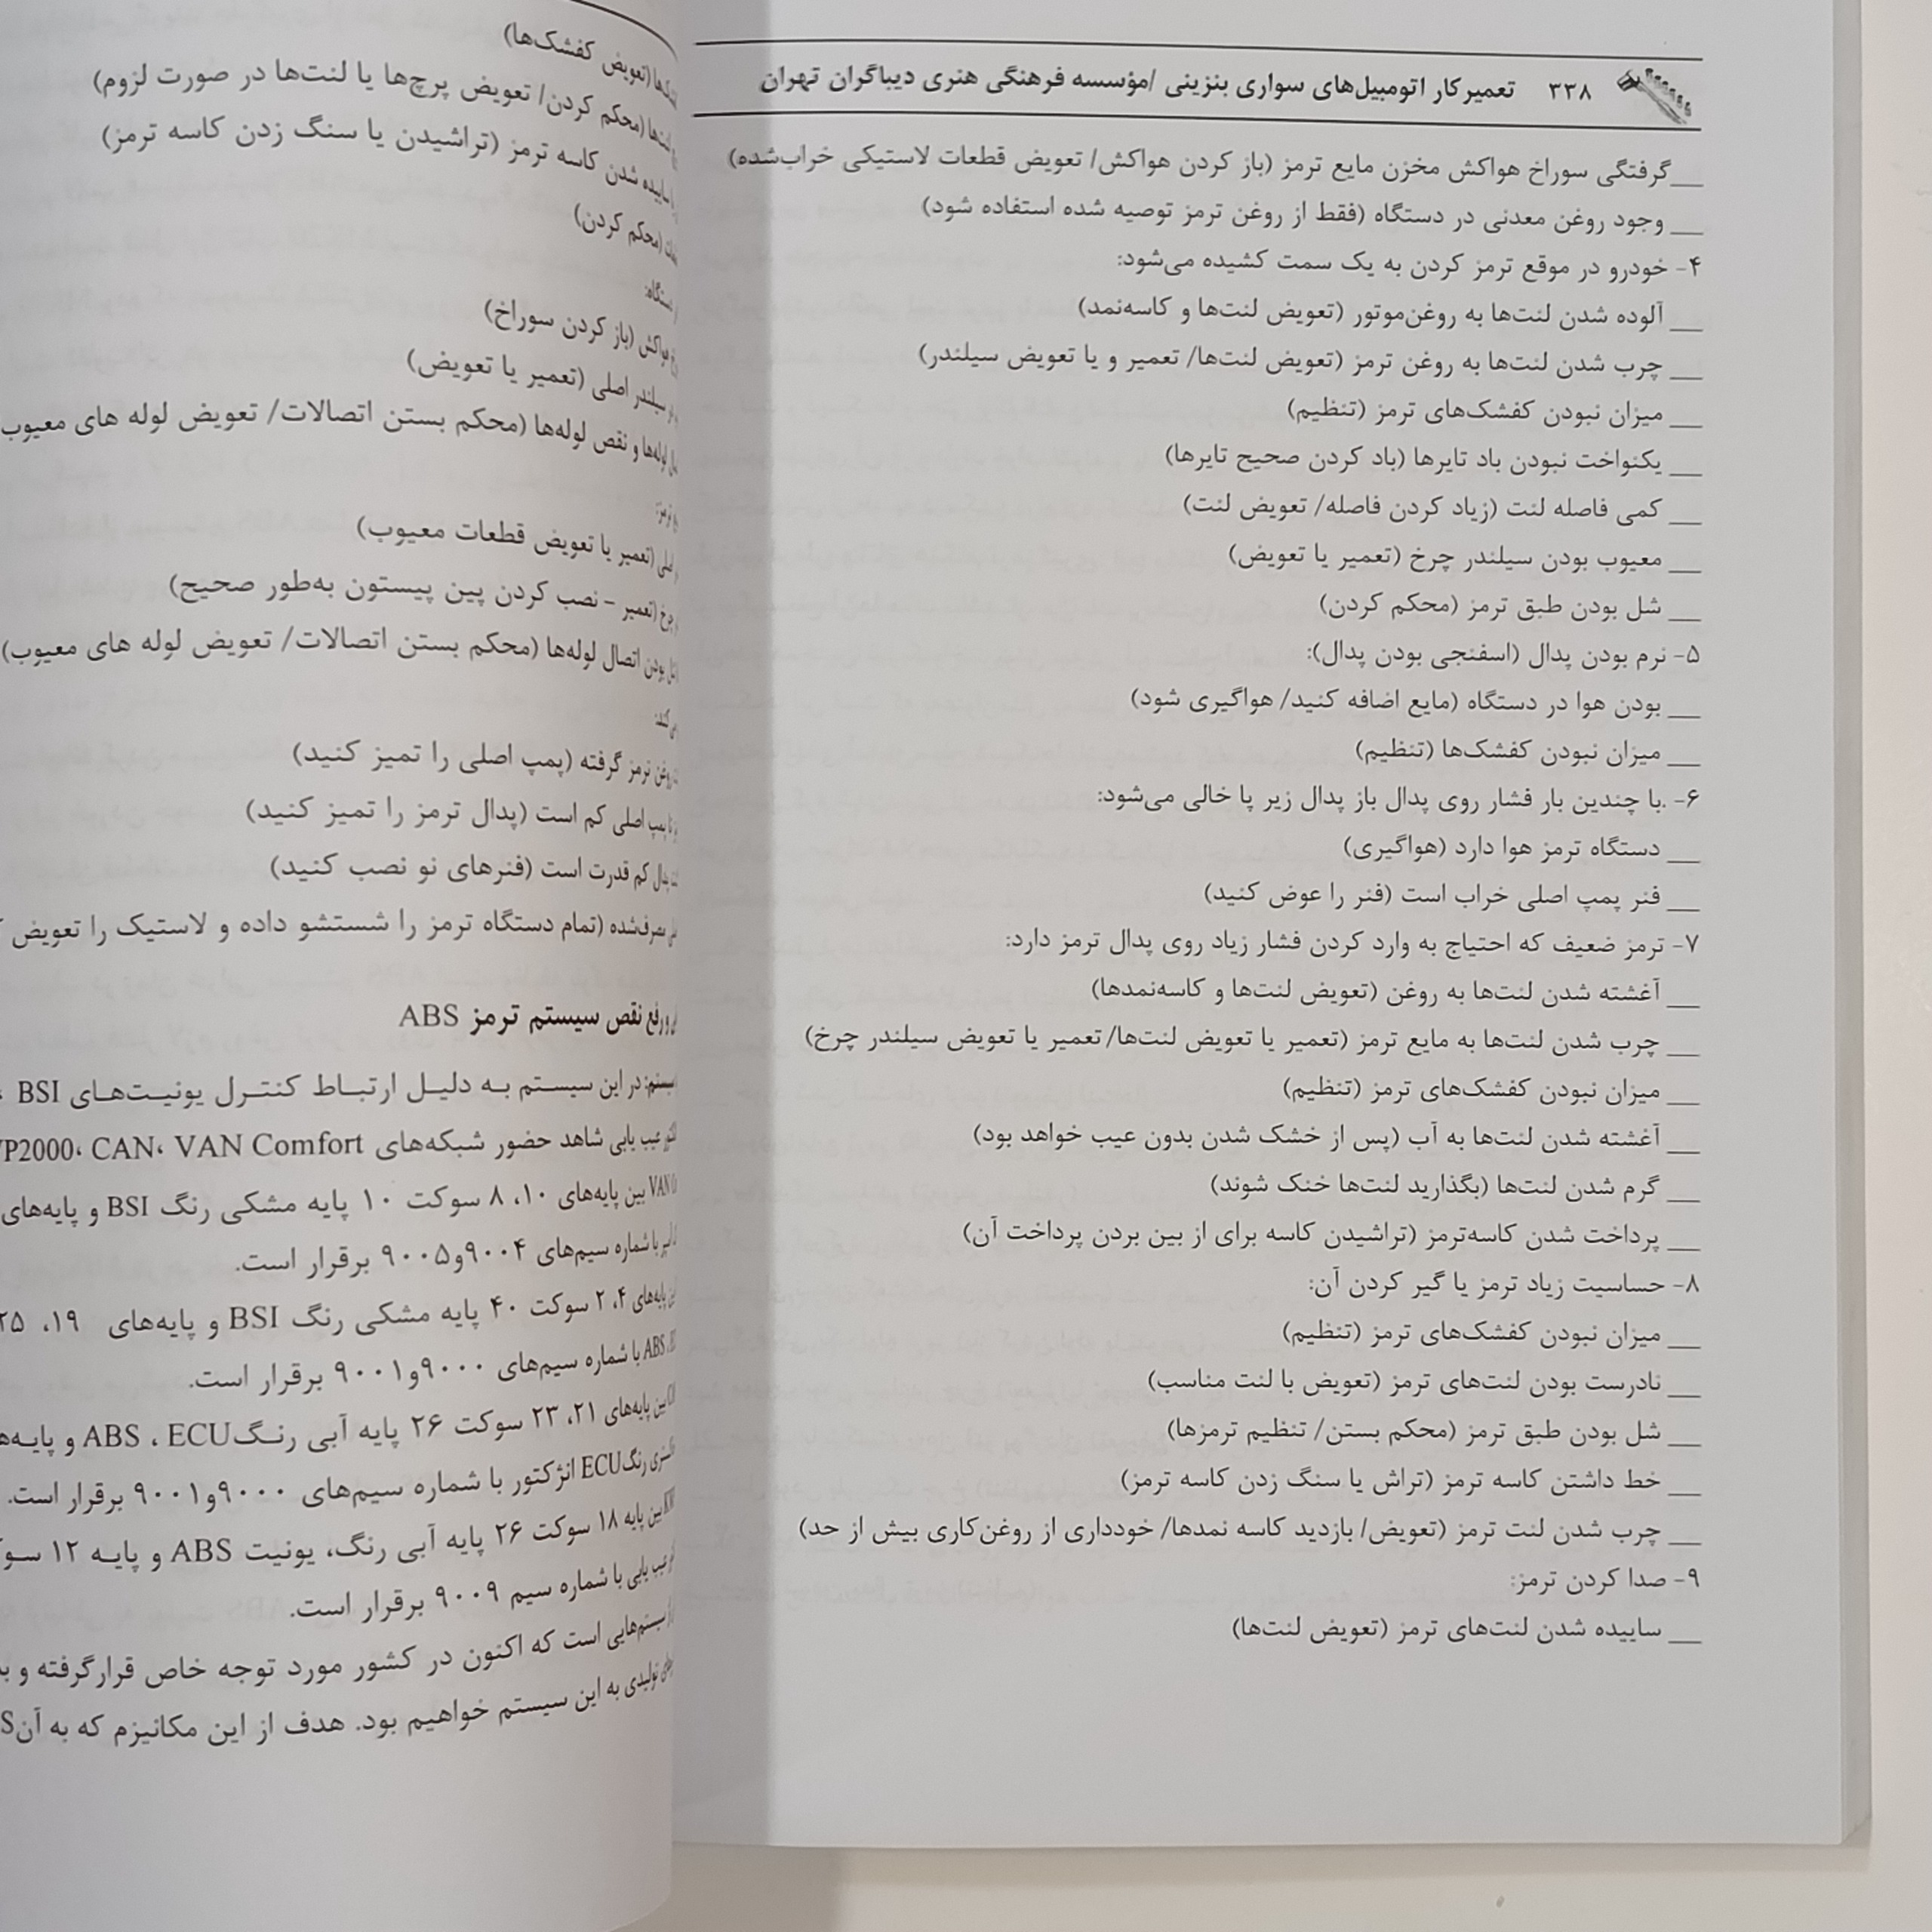 ۳۳۸ تعمیرکار اتومبیل‌های سواری بنزینی /مؤسسه فرهنگی هنری دیباگران تهران
__گرفتگی سوراخ هواکش مخزن مایع ترمز (باز کردن هواکش/ تعویض قطعات لاستیکی خراب‌شده)
__ وجود روغن معدنی در دستگاه (فقط از روغن ترمز توصیه شده استفاده شود)
۴- خودرو در موقع ترمز کردن به یک سمت کشیده می‌شود:
__ آلوده شدن لنت‌ها به روغن‌موتور (تعویض لنت‌ها و کاسه‌نمد)
__ چرب شدن لنت‌ها به روغن ترمز (تعویض لنت‌ها/ تعمیر و یا تعویض سیلندر)
__ میزان نبودن کفشک‌های ترمز (تنظیم)
__ یکنواخت نبودن باد تایرها (باد کردن صحیح تایرها)
__ کمی فاصله لنت (زیاد کردن فاصله/ تعویض لنت)
__ معیوب بودن سیلندر چرخ (تعمیر یا تعویض)
__ شل بودن طبق ترمز (محکم کردن)
۵- نرم بودن پدال (اسفنجی بودن پدال):
__ بودن هوا در دستگاه (مایع اضافه کنید/ هواگیری شود)
__ میزان نبودن کفشک‌ها (تنظیم)
۶- .با چندین بار فشار روی پدال باز پدال زیر پا خالی می‌شود:
__ دستگاه ترمز هوا دارد (هواگیری)
__ فنر پمپ اصلی خراب است (فنر را عوض کنید)
۷- ترمز ضعیف که احتیاج به وارد کردن فشار زیاد روی پدال ترمز دارد:
__ آغشته شدن لنت‌ها به روغن (تعویض لنت‌ها و کاسه‌نمدها)
__ چرب شدن لنت‌ها به مایع ترمز (تعمیر یا تعویض لنت‌ها/ تعمیر یا تعویض سیلندر چرخ)
__ میزان نبودن کفشک‌های ترمز (تنظیم)
__ آغشته شدن لنت‌ها به آب (پس از خشک شدن بدون عیب خواهد بود)
__ گرم شدن لنت‌ها (بگذارید لنت‌ها خنک شوند)
__ پرداخت شدن کاسه‌ترمز (تراشیدن کاسه برای از بین بردن پرداخت آن)
۸- حساسیت زیاد ترمز یا گیر کردن آن:
__ میزان نبودن کفشک‌های ترمز (تنظیم)
__ نادرست بودن لنت‌های ترمز (تعویض با لنت مناسب)
__ شل بودن طبق ترمز (محکم بستن/ تنظیم ترمزها)
__ خط داشتن کاسه ترمز (تراش یا سنگ زدن کاسه ترمز)
__ چرب شدن لنت ترمز (تعویض/ بازدید کاسه نمدها/ خودداری از روغن‌کاری بیش از حد)
۹- صدا کردن ترمز:
__ ساییده شدن لنت‌های ترمز (تعویض لنت‌ها)
(تعویض کفشک‌ها)
(محکم کردن/ تعویض پرچ‌ها یا لنت‌ها در صورت لزوم)
ساییده شدن کاسه ترمز (تراشیدن یا سنگ زدن کاسه ترمز)
(محکم کردن)
هواکش (باز کردن سوراخ)
سیلندر اصلی (تعمیر یا تعویض)
لوله‌ها و نقص لوله‌ها (محکم بستن اتصالات/ تعویض لوله های معیوب
(تعمیر یا تعویض قطعات معیوب)
چرخ (تعمیر – نصب کردن پین پیستون به‌طور صحیح)
بودن اتصال لوله‌ها (محکم بستن اتصالات/ تعویض لوله های معیوب)
روغن ترمز گرفته (پمپ اصلی را تمیز کنید)
پمپ اصلی کم است (پدال ترمز را تمیز کنید)
پدال کم قدرت است (فنرهای نو نصب کنید)
مصرف‌شده (تمام دستگاه ترمز را شستشو داده و لاستیک را تعویض
و رفع نقص سیستم ترمز ABS
در این سیستم به دلیل ارتباط کنترل یونیت‌های BSI
عیب یابی شاهد حضور شبکه‌های VP2000، CAN، VAN Comfort
VAN بین پایه‌های ۱۰، ۸ سوکت ۱۰ پایه مشکی رنگ BSI و پایه‌های
با شماره سیم‌های ۹۰۰۴و۹۰۰۵ برقرار است.
پایه‌های ۴، ۲ سوکت ۴۰ پایه مشکی رنگ BSI و پایه‌های ۱۹، ۲۵
ABS با شماره سیم‌های ۹۰۰۰و۹۰۰۱ برقرار است.
بین پایه‌های ۲۱، ۲۳ سوکت ۲۶ پایه آبی رنگ ABS ، ECU و
رنگ ECU انژکتور با شماره سیم‌های ۹۰۰۰و۹۰۰۱ برقرار است.
بین پایه ۱۸ سوکت ۲۶ پایه آبی رنگ، یونیت ABS و پایه ۱۲
عیب یابی با شماره سیم ۹۰۰۹ برقرار است.
سیستم‌هایی است که اکنون در کشور مورد توجه خاص قرارگرفته و
تولیدی به این سیستم خواهیم بود. هدف از این مکانیزم که به آن